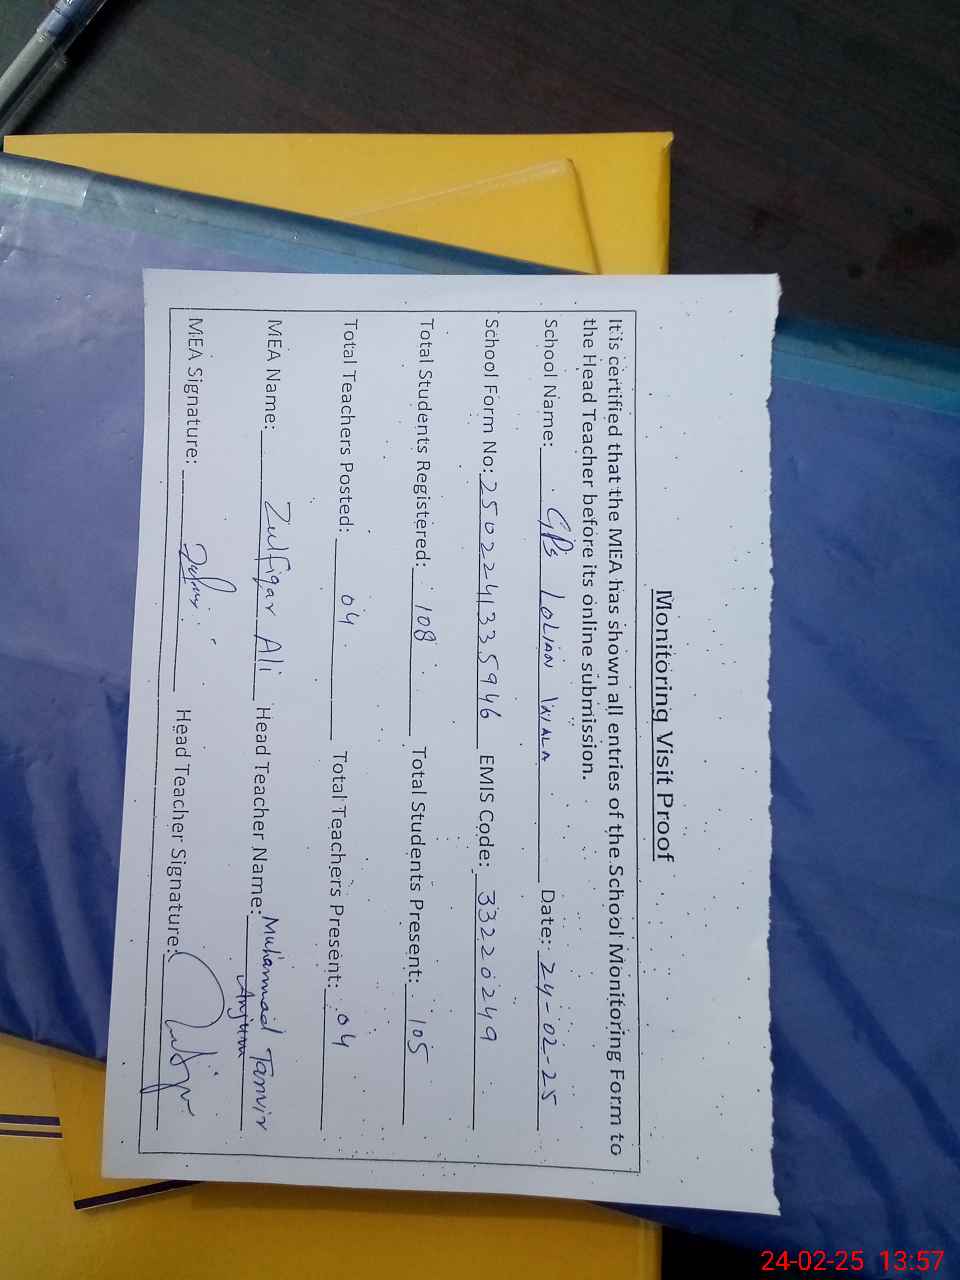 Monitoring Visit Proof
It is certified that the MEA has shown all entries of the School Monitoring Form to
the Head Teacher before its online submission.
School Name: GPS LOLIAN WALA Date: 24-02-25
School Form No: 2502241335946 EMIS Code: 33220249
Total Students Registered: 108 Total Students Present: 105
Total Teachers Posted: 04 Total Teachers Present: 04
MEA Name: Zulfiqar Ali Head Teacher Name: Muhammad Tanvir
Anjum
MEA Signature: Head Teacher Signature:
24-02-25 13:57